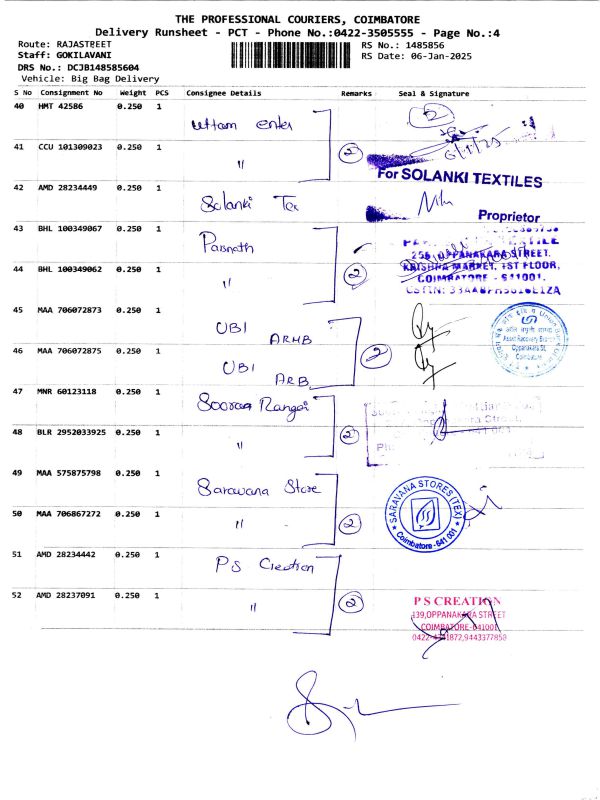 THE PROFESSIONAL COURIERS, COIMBATORE
Delivery Runsheet - PCT - Phone No.:0422-3505555 - Page No.:4
Route: RAJASTREET
RS No.: 1485856
Staff: GOKILAVANI
RS Date: 06-Jan-2025
DRS No.: DCJB148585604
Vehicle: Big Bag Delivery
S No Consignment No Weight PCS Consignee Details Remarks Seal & Signature
40 HMT 42586 0.250 1 Uttam enter 2
41 CCU 101309023 0.250 1 " 2 6/1/25
For SOLANKI TEXTILES
42 AMD 28234449 0.250 1 Solanki Tex
Proprietor
43 BHL 100349067 0.250 1 Parsnath
256, OPPANAKARA STREET,
KRISHNA MARKET, 1ST FLOOR,
44 BHL 100349062 0.250 1 " 2
COIMBATORE - 641001.
45 MAA 706072873 0.250 1 UBI ARMB
Asset Recovery Branch
Oppanakara St,
Coimbatore
46 MAA 706072875 0.250 1 UBI ARB 2
47 MNR 60123118 0.250 1 Sooraa Rangai
48 BLR 2952033925 0.250 1 " 2
49 MAA 575875798 0.250 1 Saravana Store
SARAVANA STORES (TEX)
Coimbatore - 641 001
50 MAA 706867272 0.250 1 " 2
51 AMD 28234442 0.250 1 PS Creation
52 AMD 28237091 0.250 1 " 2
P S CREATION
139,OPPANAKARA STREET
COIMBATORE-641001
9443377850